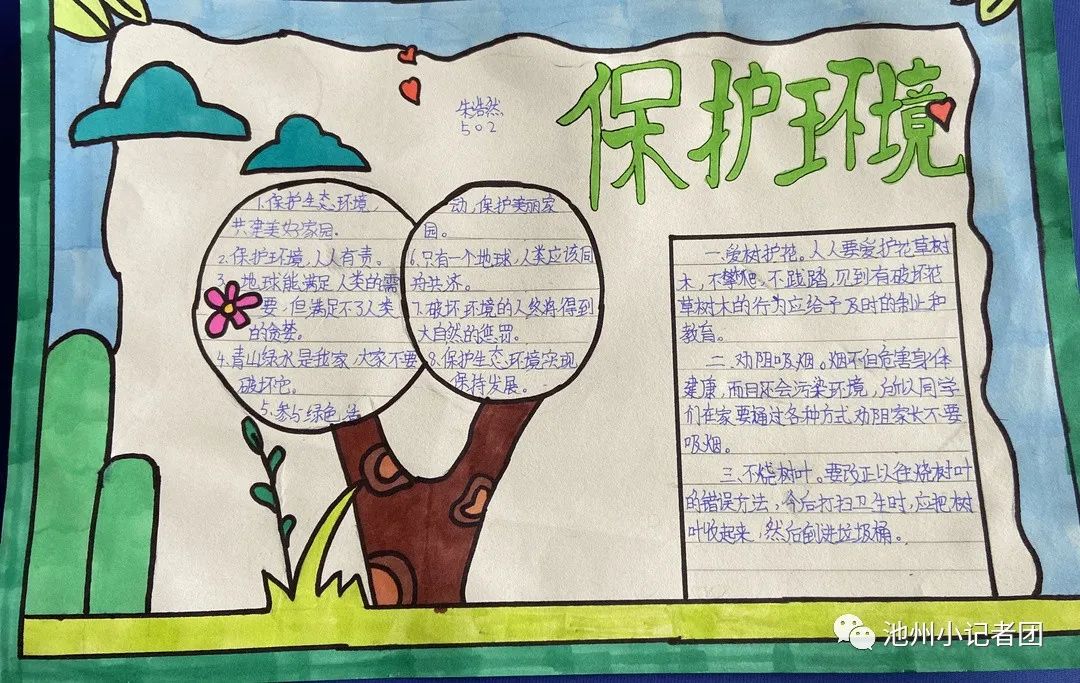 保护环境
朱浩然
502
1.保护生态环境,
共建美好家园.
2.保护环境,人人有责。
3.地球能满足人类的需
要,但满足不了人类
的贪婪。
4.青山绿水是我家,大家不要
破坏它。
5.参与绿色
动,保护美丽家
园。
6.只有一个地球,人类应该同
舟共济。
7.破坏环境的人终将得到
大自然的惩罚。
8.保护生态环境实现
保持发展。
一.爱树护花。人人要爱护花草树
木,不攀爬,不践踏,见到有破坏花
草树木的行为应给予及时的制止和
教育。
二.劝阻吸烟。烟不但危害身体
健康,而且还会污染环境,所以同学
们在家要通过各种方式劝阻家长不要
吸烟。
三.不烧树叶。要改正以往烧树叶
的错误方法,今后打扫卫生时,应把树
叶收起来,然后倒进垃圾桶。
池州小记者团